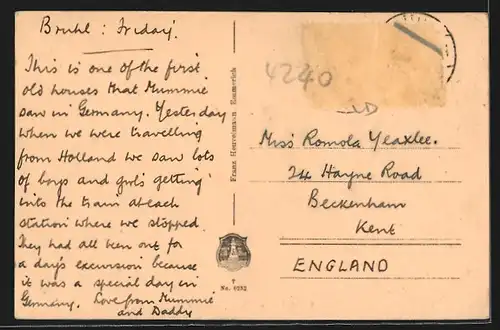 Bruhl : Friday.
This is one of the first
old houses that Mummie
saw in Germany. Yesterday
when we were travelling
from Holland we saw lots
of boys and girls getting
into the train at each
station where we stopped.
They had all been out for
a day's excursion because
it was a special day in
Germany. Love from Mummie
and Daddy
Franz Heuvelmann Emmerich
7
No. 0252
4240
Miss Romola Yeaxlee.
24 Hayne Road
Beckenham
Kent
ENGLAND